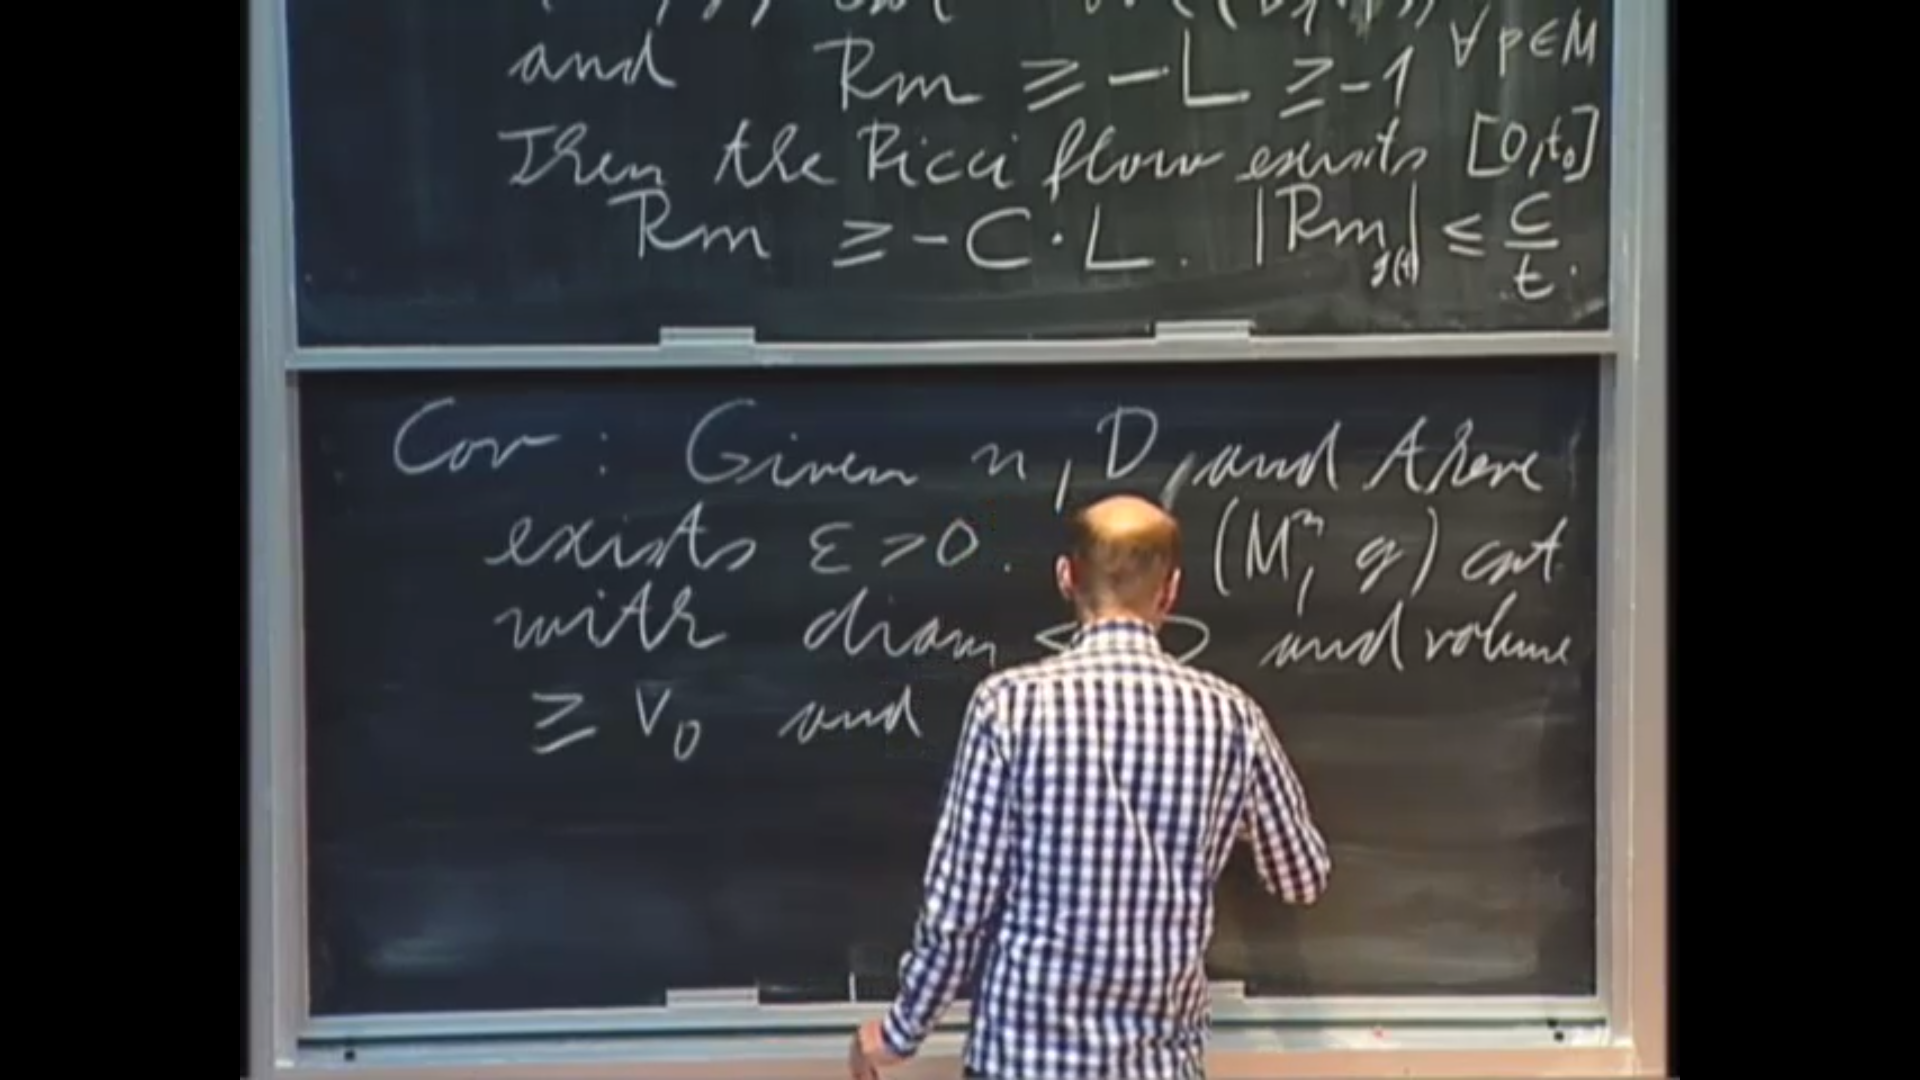 and Rm ≥ -L ≥ -1 ∀ p ∈ M
Then the Ricci flow exists [0, t₀]
Rm ≥ - C · L. |Rm_g(t)| ≤ C/t.
Cor : Given n, D, and there
exists ε > 0. (Mⁿ, g) cpt
with diam ≤ D and volume
≥ V₀ and